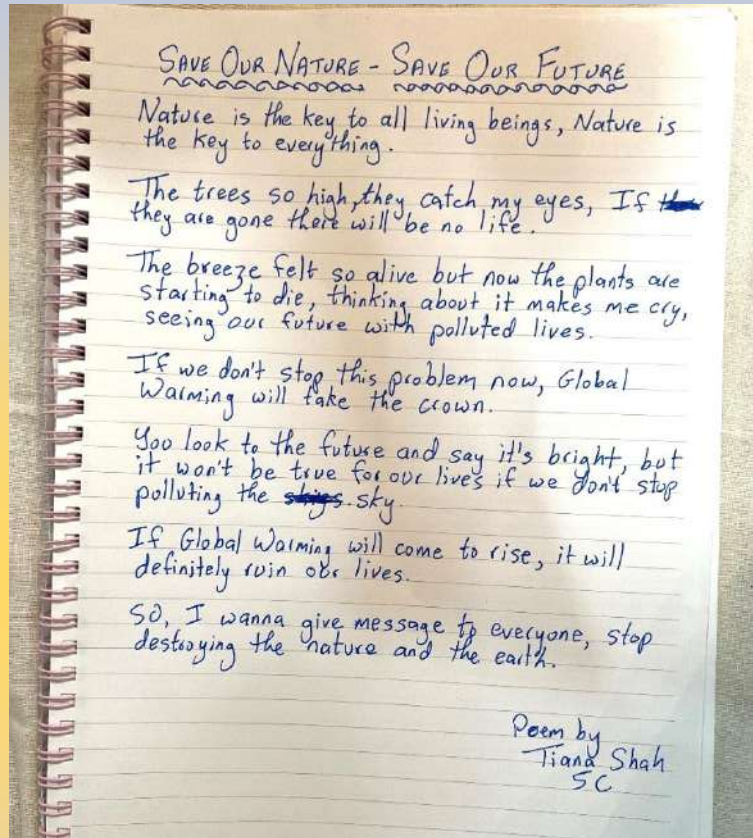 SAVE OUR NATURE - SAVE OUR FUTURE
Nature is the key to all living beings, Nature is
the key to everything.
The trees so high, they catch my eyes, If
they are gone there will be no life.
The breeze felt so alive but now the plants are
starting to die, thinking about it makes me cry,
seeing our future with polluted lives.
If we don't stop this problem now, Global
Warming will take the crown.
You look to the future and say it's bright, but
it won't be true for our lives if we don't stop
polluting the sky.
If Global Warming will come to rise, it will
definitely ruin our lives.
So, I wanna give message to everyone, stop
destroying the nature and the earth.
Poem by
Tiana Shah
5C